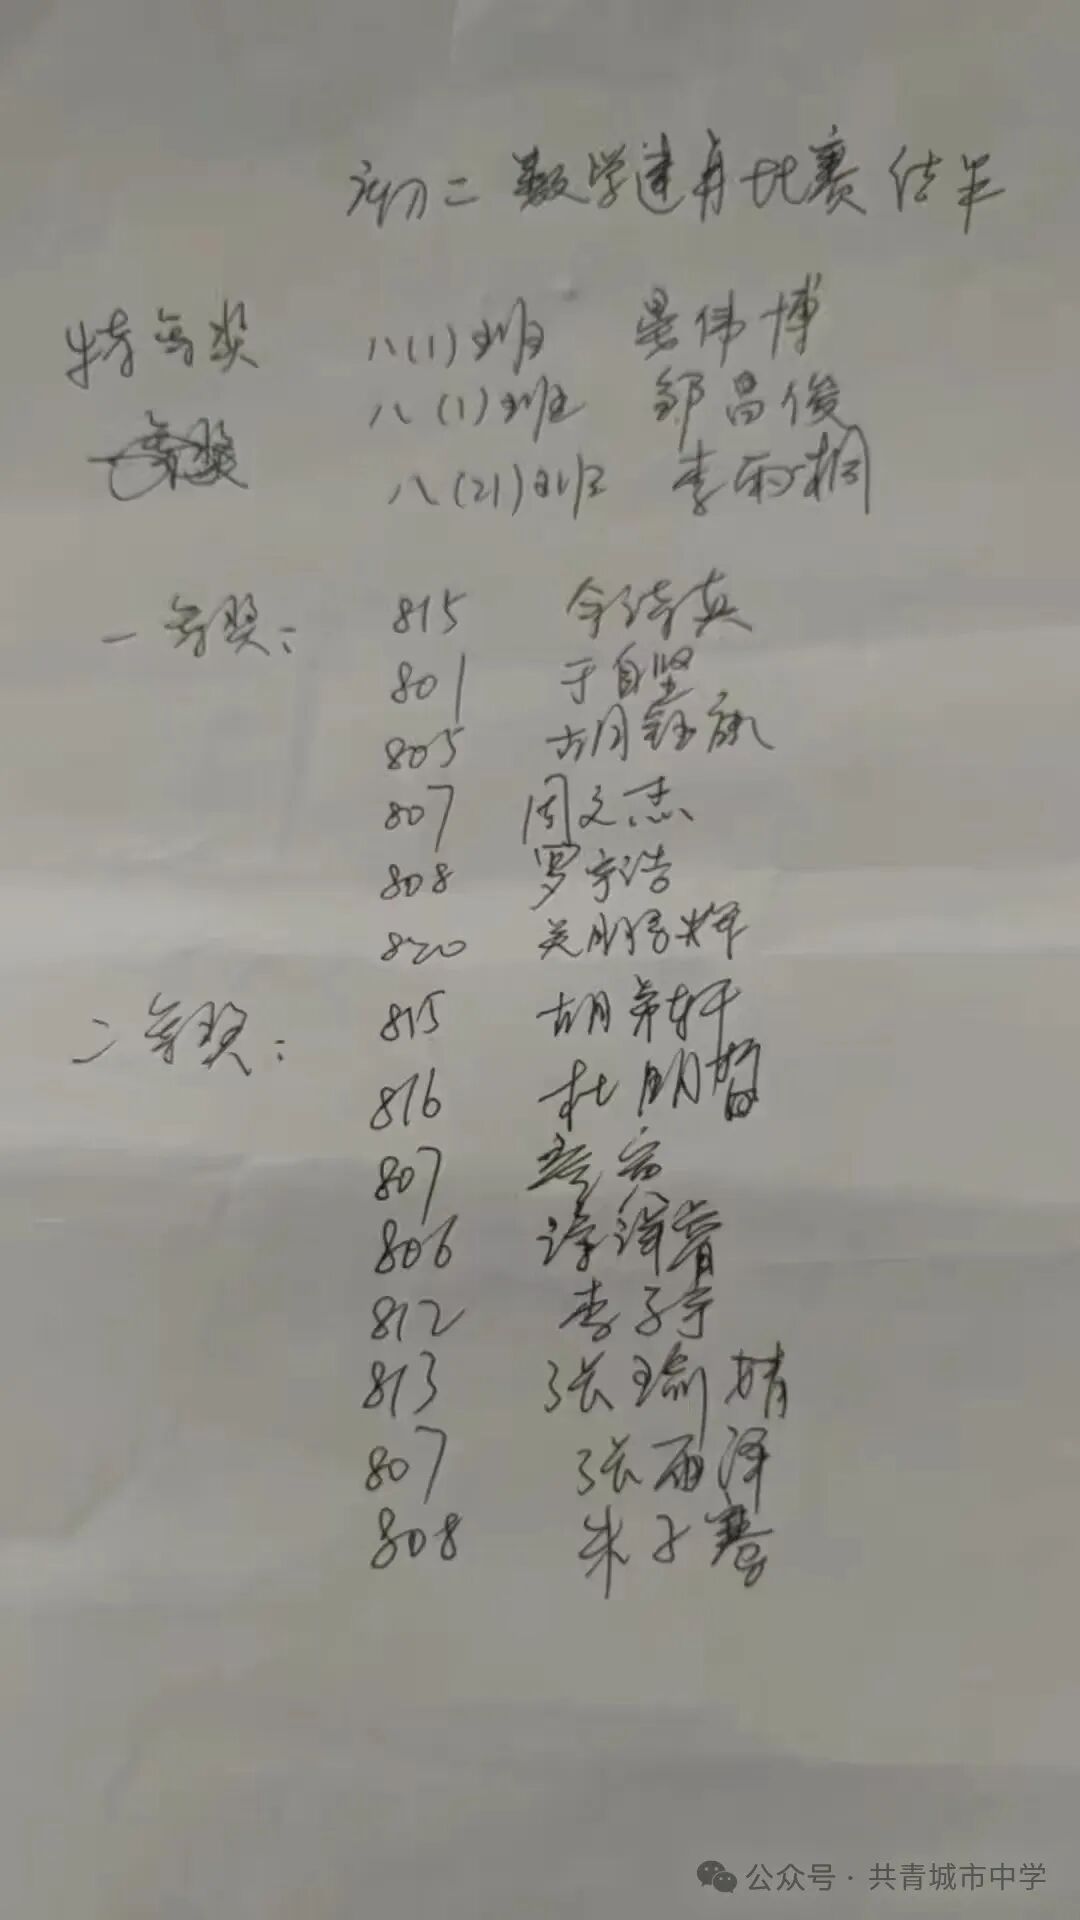 初二数学速算比赛结果
特等奖 八(1)班 晏伟博
八(1)班 邹昌俊
八(21)班 李雨桐
一等奖: 815 余诗真
801 于自坚
805 胡钰
807 周文杰
808 罗宇浩
820 吴鹏辉
二等奖: 815 胡轩
816 杜明哲
807
806
812 李子宁
813 张瑜婧
807 张雨泽
808 朱子骞
公众号·共青城市中学